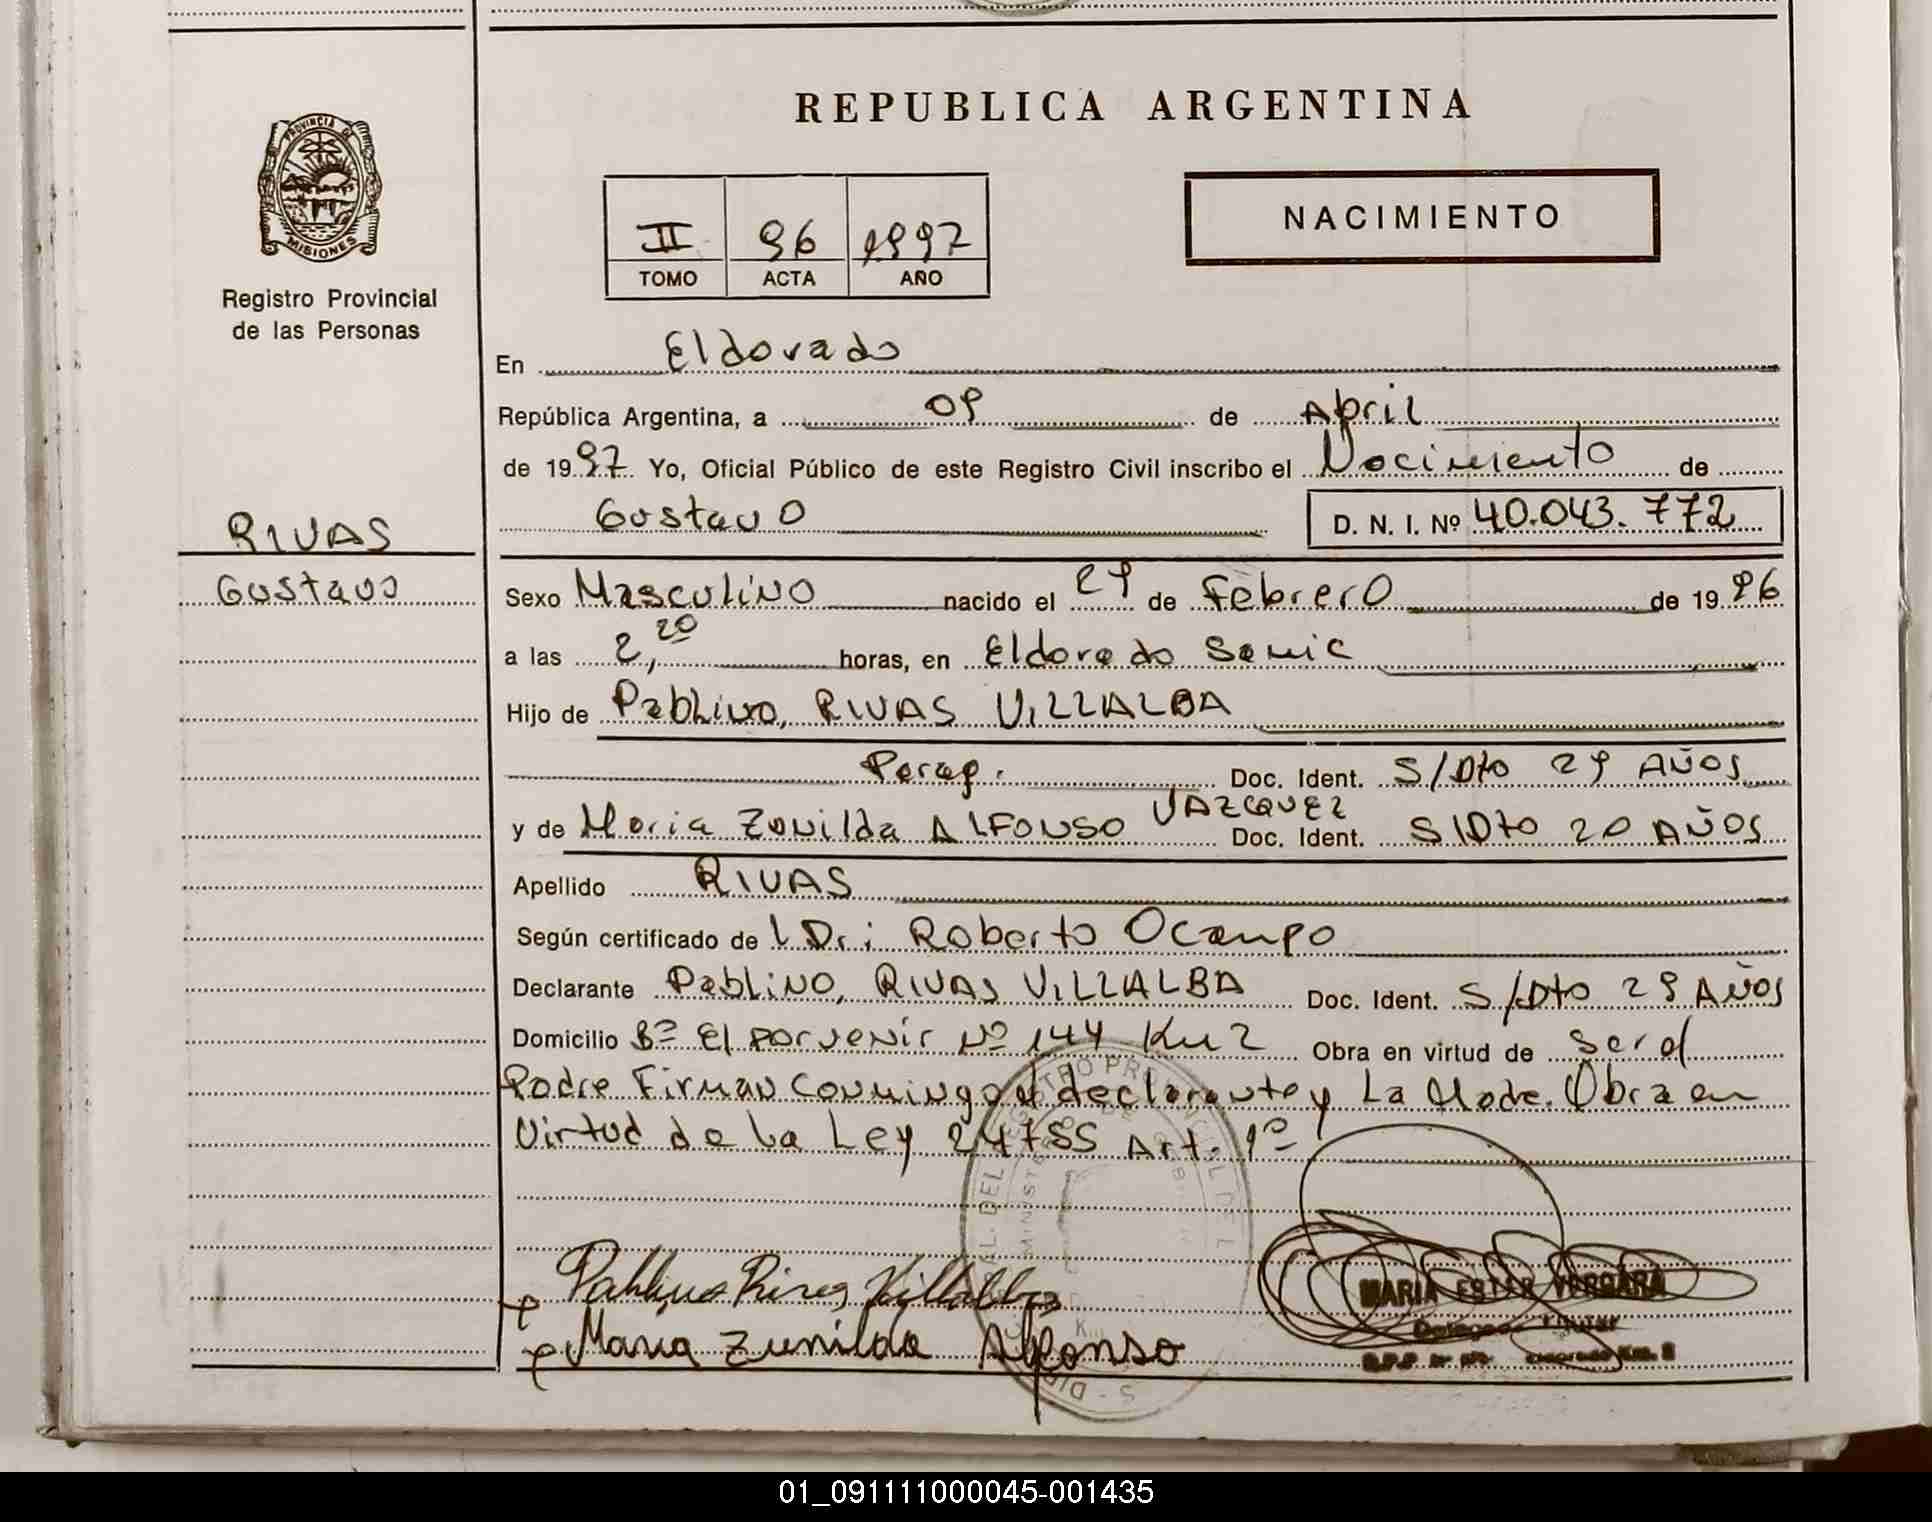 REPUBLICA ARGENTINA
PROVINCIA DE
MISIONES
Registro Provincial
de las Personas
II 96 1997
TOMO ACTA AÑO
NACIMIENTO
En Eldorado
República Argentina, a 09 de Abril
de 1997 Yo, Oficial Público de este Registro Civil inscribo el Nacimiento de
Gustavo D. N. I. Nº 40.043.772
RIVAS
Gustavo
Sexo Masculino nacido el 29 de Febrero de 1996
a las 2,20 horas, en Eldorado Samic
Hijo de Pablino, RIVAS VILLALBA
Parag. Doc. Ident. S/Dto 29 AÑOS
y de Maria Zonilda ALFONSO VAZCQUEZ Doc. Ident. S/Dto 20 AÑOS
Apellido RIVAS
Según certificado de l Dr: Roberto Ocampo
Declarante Pablino, RIVAS VILLALBA Doc. Ident. S/Dto 29 AÑOS
Domicilio Bº El porvenir Nº 144 Km 2 Obra en virtud de ser el
Padre Firman conmingo el declarante y La Madre. Obra en
Virtud de la Ley 24755 Art. 1º
Pablino Rivas Villalba
Maria Zunilda Alfonso
MARIA ESTER VERGARA
01_091111000045-001435